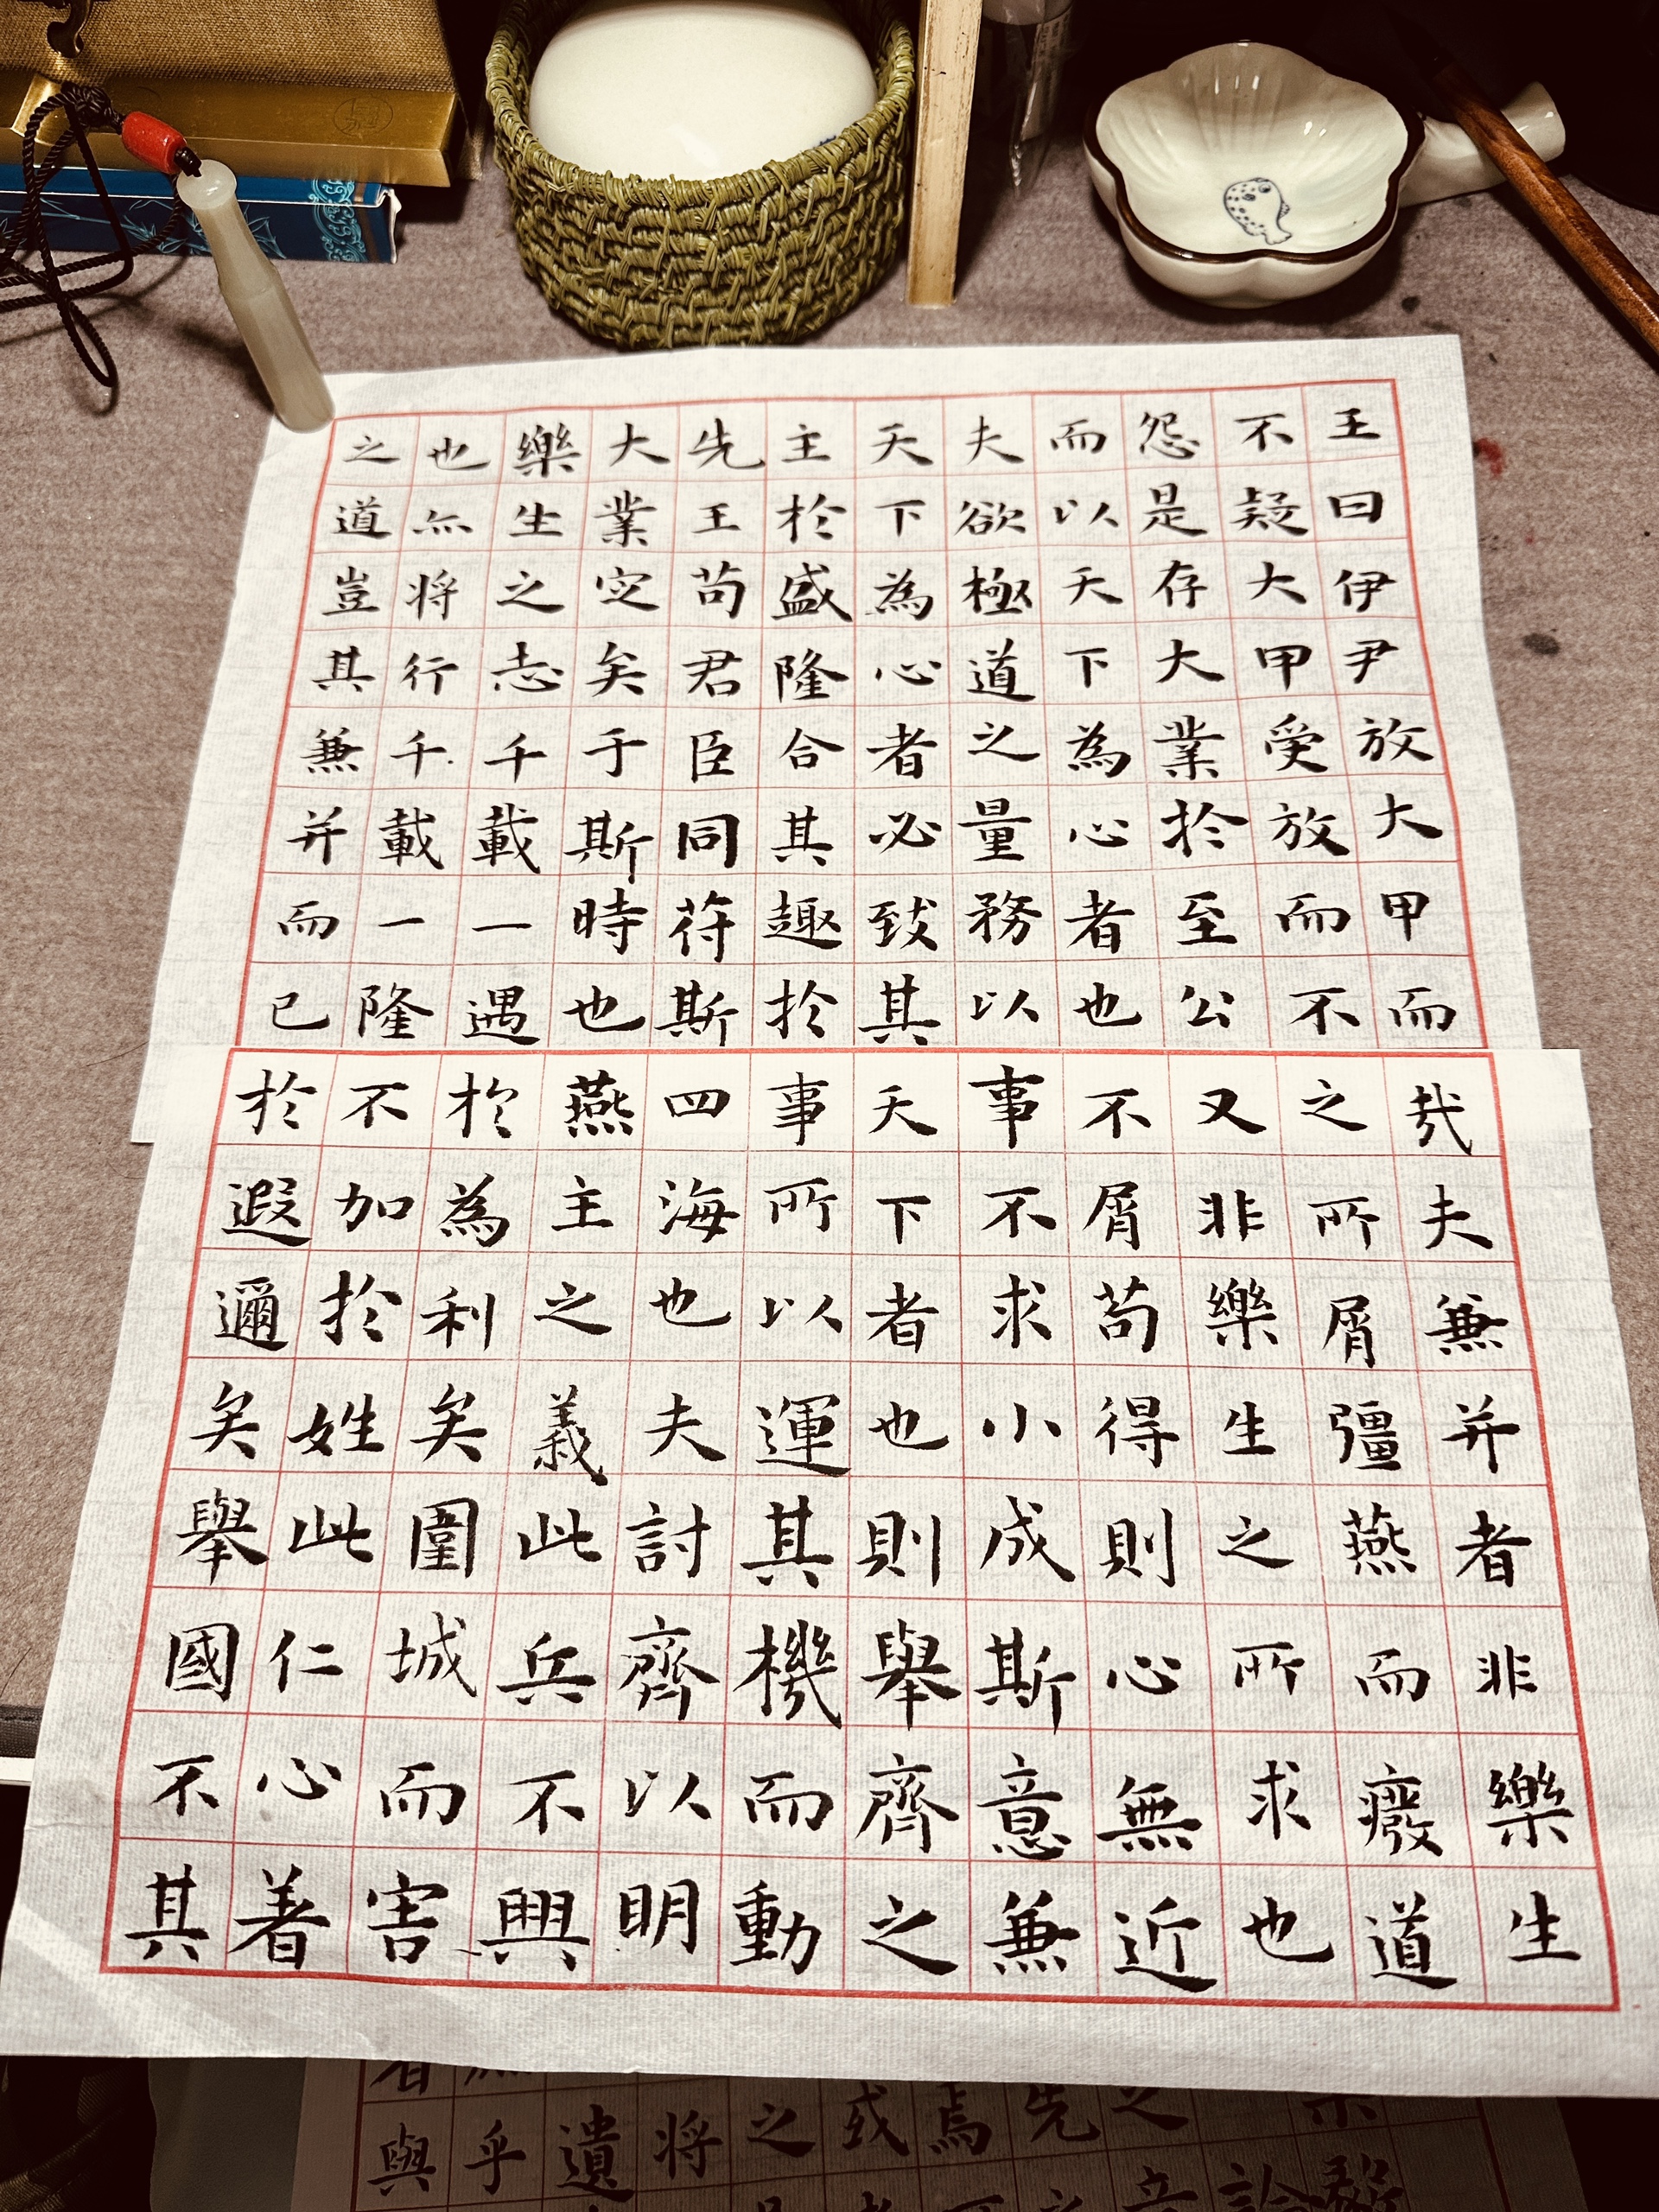 王曰伊尹放大甲而
不疑大甲受放而不
怨是存大業於至公
而以天下為心者也
夫欲極道之量務以
天下為心者必致其
主於盛隆合其趣於
先王苟君臣同符斯
大業定矣于斯時也
樂生之志千載一遇
也亦将行千載一隆
之道豈其兼并而已
哉夫兼并者非樂生
之所屑彊燕而癈道
又非樂生之所求也
不屑苟得則心無近
事不求小成斯意兼
天下者也則舉齊之
事所以運其機而動
四海也夫討齊以明
燕主之義此兵不興
於為利矣圍城而害
不加於姓此仁心著
於遐邇矣舉國不其
論
之
先
焉
或
之
将
遺
乎
與